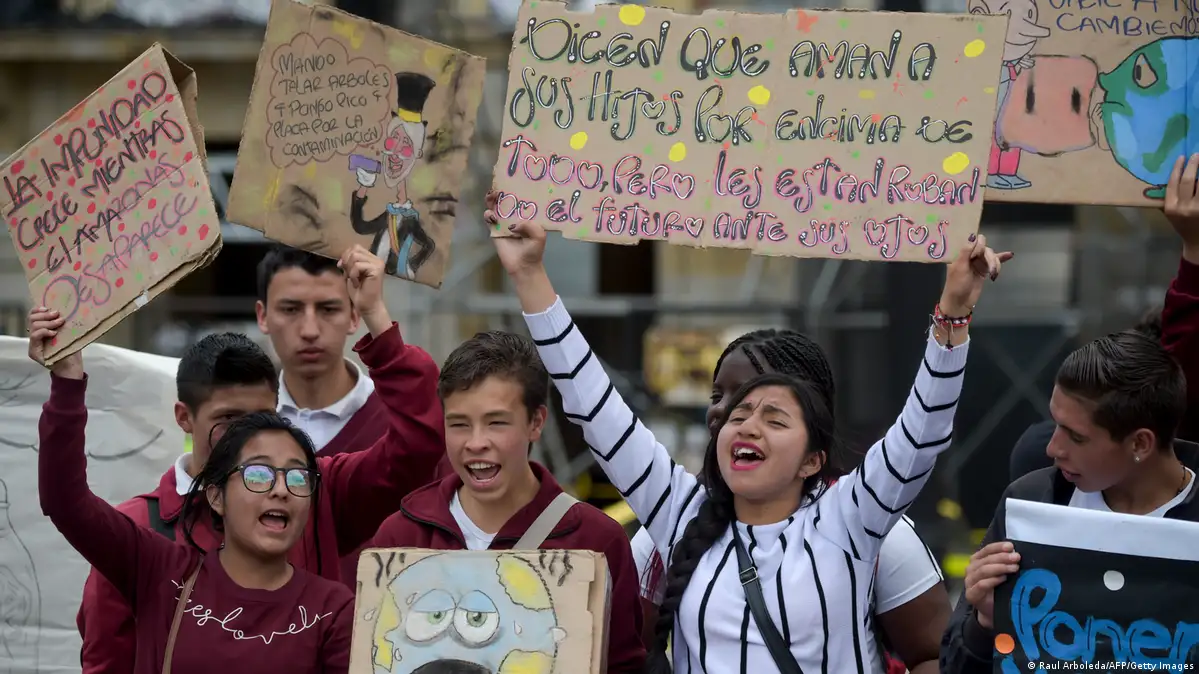 LA IMPUNIDAD
CRECE MIENTRAS
EL AMAZONAS
DESAPARECE
MANDO
TALAR ARBOLES
Y PONGO PICO Y
PLACA POR LA
CONTAMINACIÓN
DICEN QUE AMAN A
SUS HIJOS POR ENCIMA DE
TODO, PERO LES ESTAN ROBANDO
EL FUTURO ANTE SUS OJOS
CAMBIEMO
yeslovely
Poner
© Raul Arboleda/AFP/Getty Images